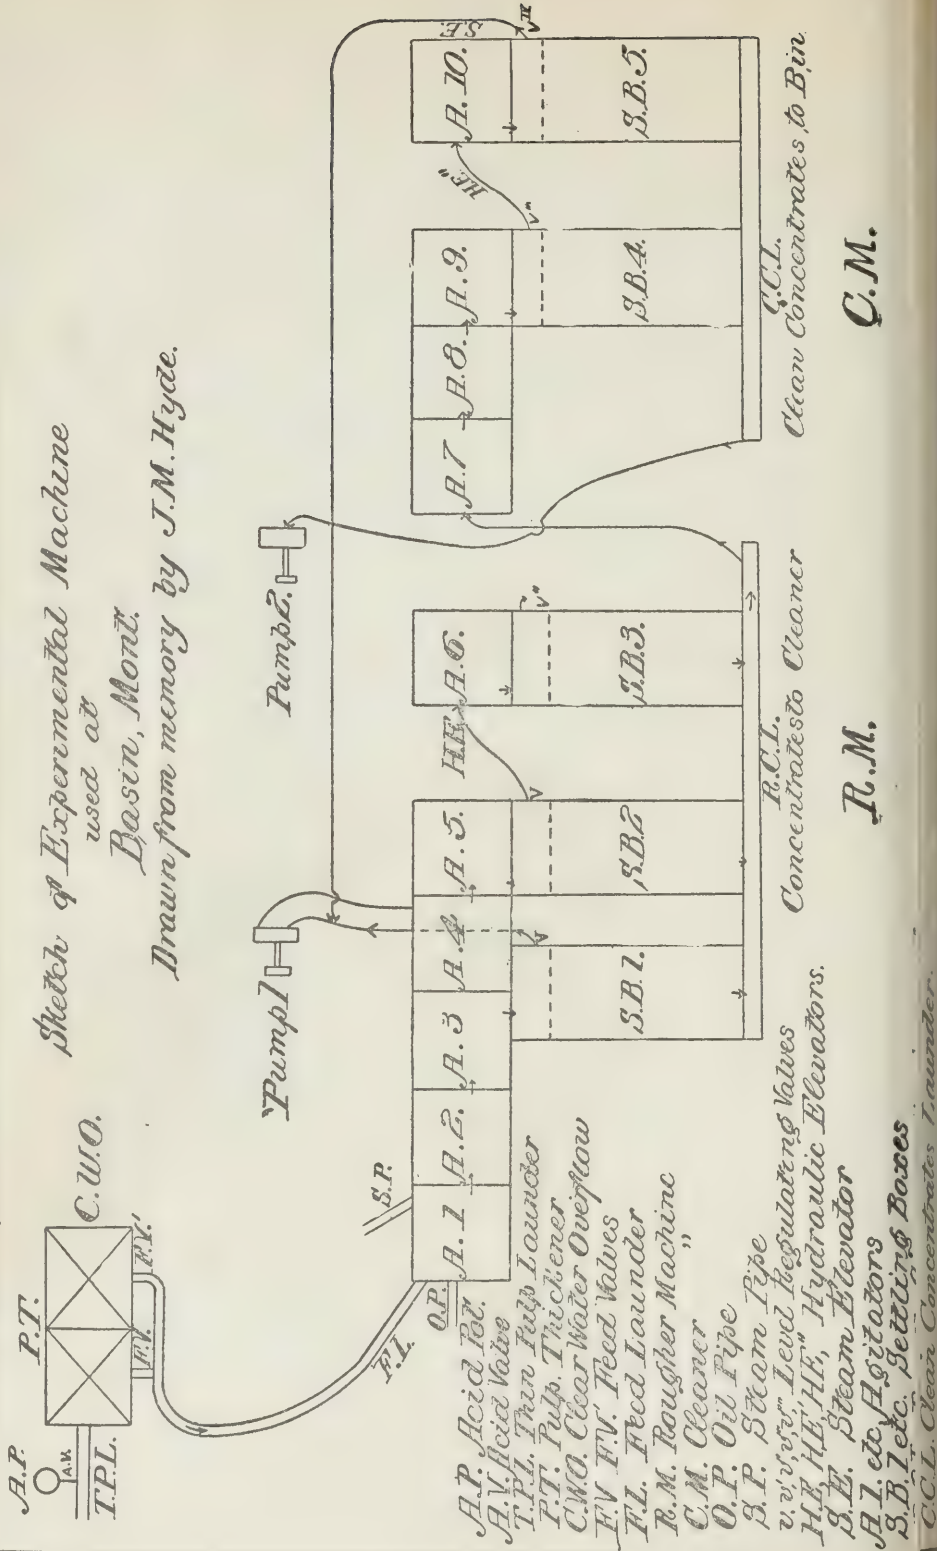 Sketch of Experimental Machine
used at
Basin, Mont.
Drawn from memory by J.M. Hyde.
A.P.
A.V.
T.P.L.
P.T.
C.W.O.
F.V.
F.V.'
F.L.
O.P.
S.P.
Pump 1
Pump 2.
A.1
A.2.
A.3
A.4
A.5.
HE
A.6.
A.7
A.8.
A.9.
HE"
A.10.
S.E.
V
V
V"
V"
V
S.B.1.
S.B.2
S.B.3
S.B.4.
S.B.5.
R.C.L.
Concentrates to Cleaner
C.C.L.
Clean Concentrates to Bin
R.M.
C.M.
A.P. Acid Pot.
A.V. Acid Valve
T.P.L. Thin Pulp Launder
P.T. Pulp Thickener
C.W.O. Clear Water Overflow
F.V. F.V.' Feed Valves
F.L. Feed Launder
R.M. Rougher Machine
C.M. Cleaner "
O.P. Oil Pipe
S.P. Steam Pipe
v. v', v", v"' Level Regulating Valves
H.E., HE', HE", Hydraulic Elevators.
S.E. Steam Elevator
A 1. etc. Agitators
S.B. 1 etc. Settling Boxes
C.C.L. Clean Concentrates Launder.